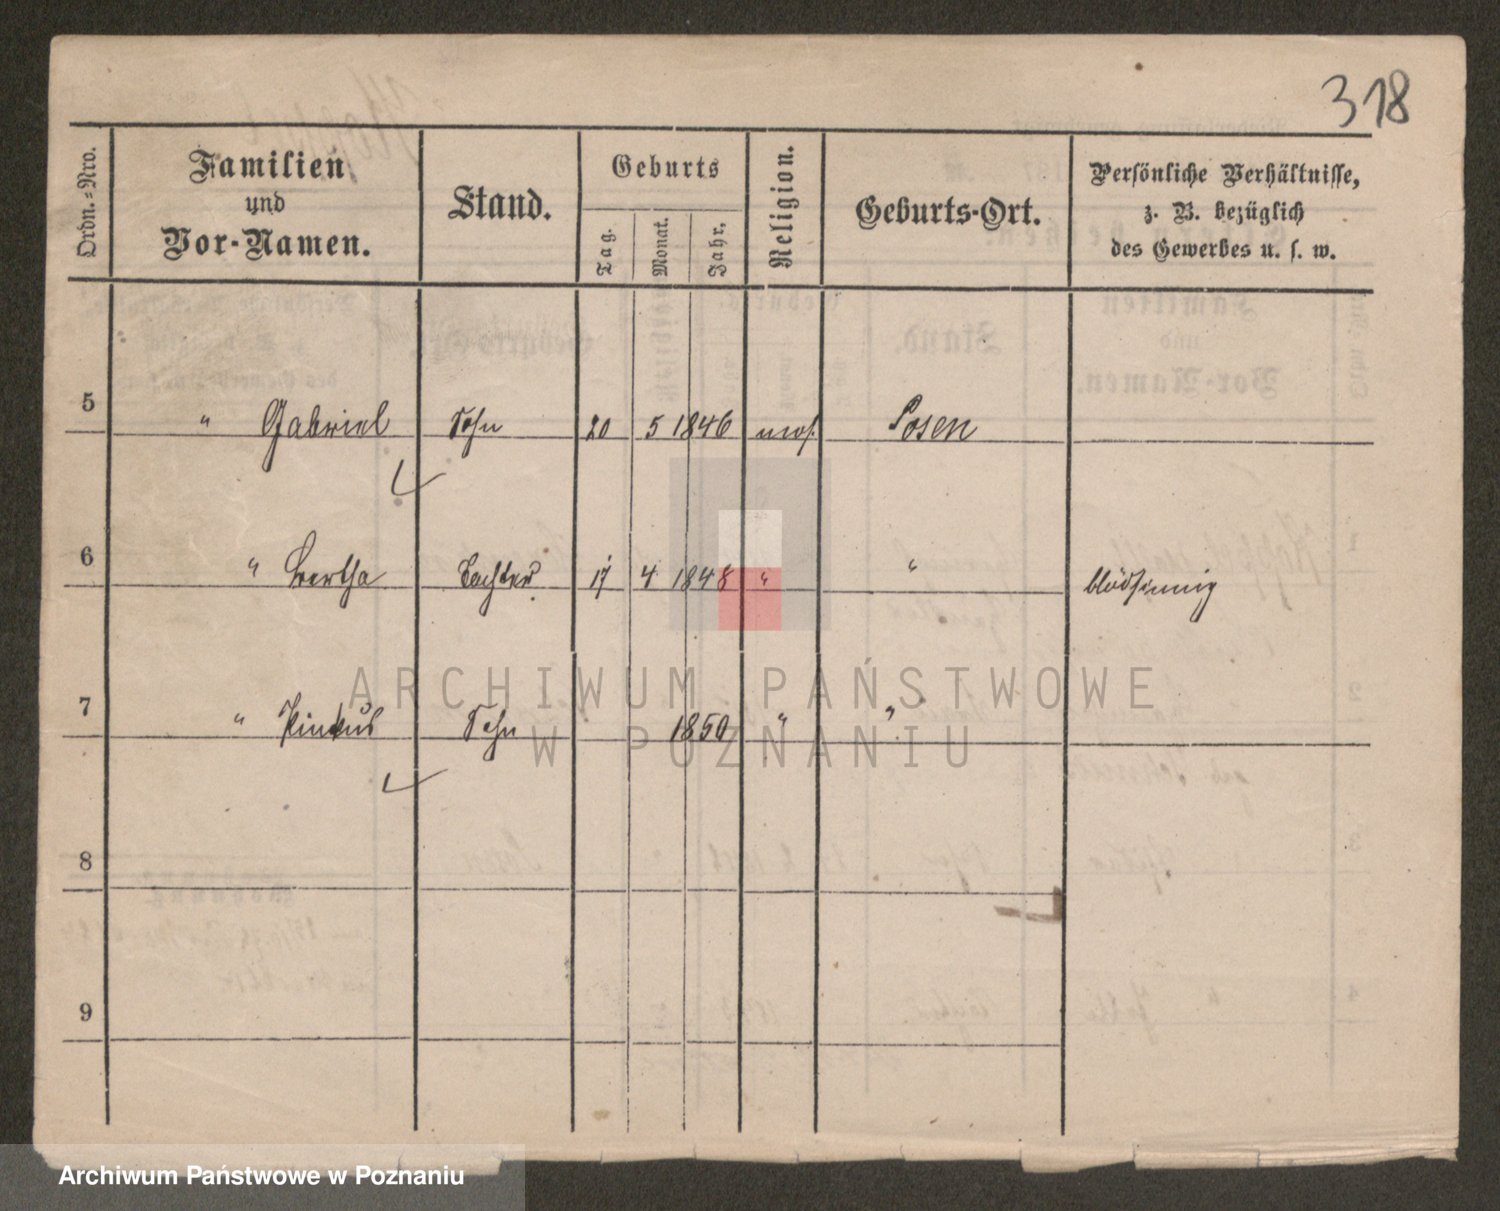 318
Ordn.-Nro.
Familien
und
Vor-Namen.
Stand.
Geburts
Tag.
Monat.
Jahr.
Religion.
Geburts-Ort.
Persönliche Verhältnisse,
z. B. bezüglich
des Gewerbes u. s. w.
5 " Gabriel Sohn 20 5 1846 mos. Posen
6 " Bertha Tochter 17 4 1848 " " blödsinnig
7 " Pinkus Sohn 1850 " "
8
9
ARCHIWUM PAŃSTWOWE
W POZNANIU
Archiwum Państwowe w Poznaniu